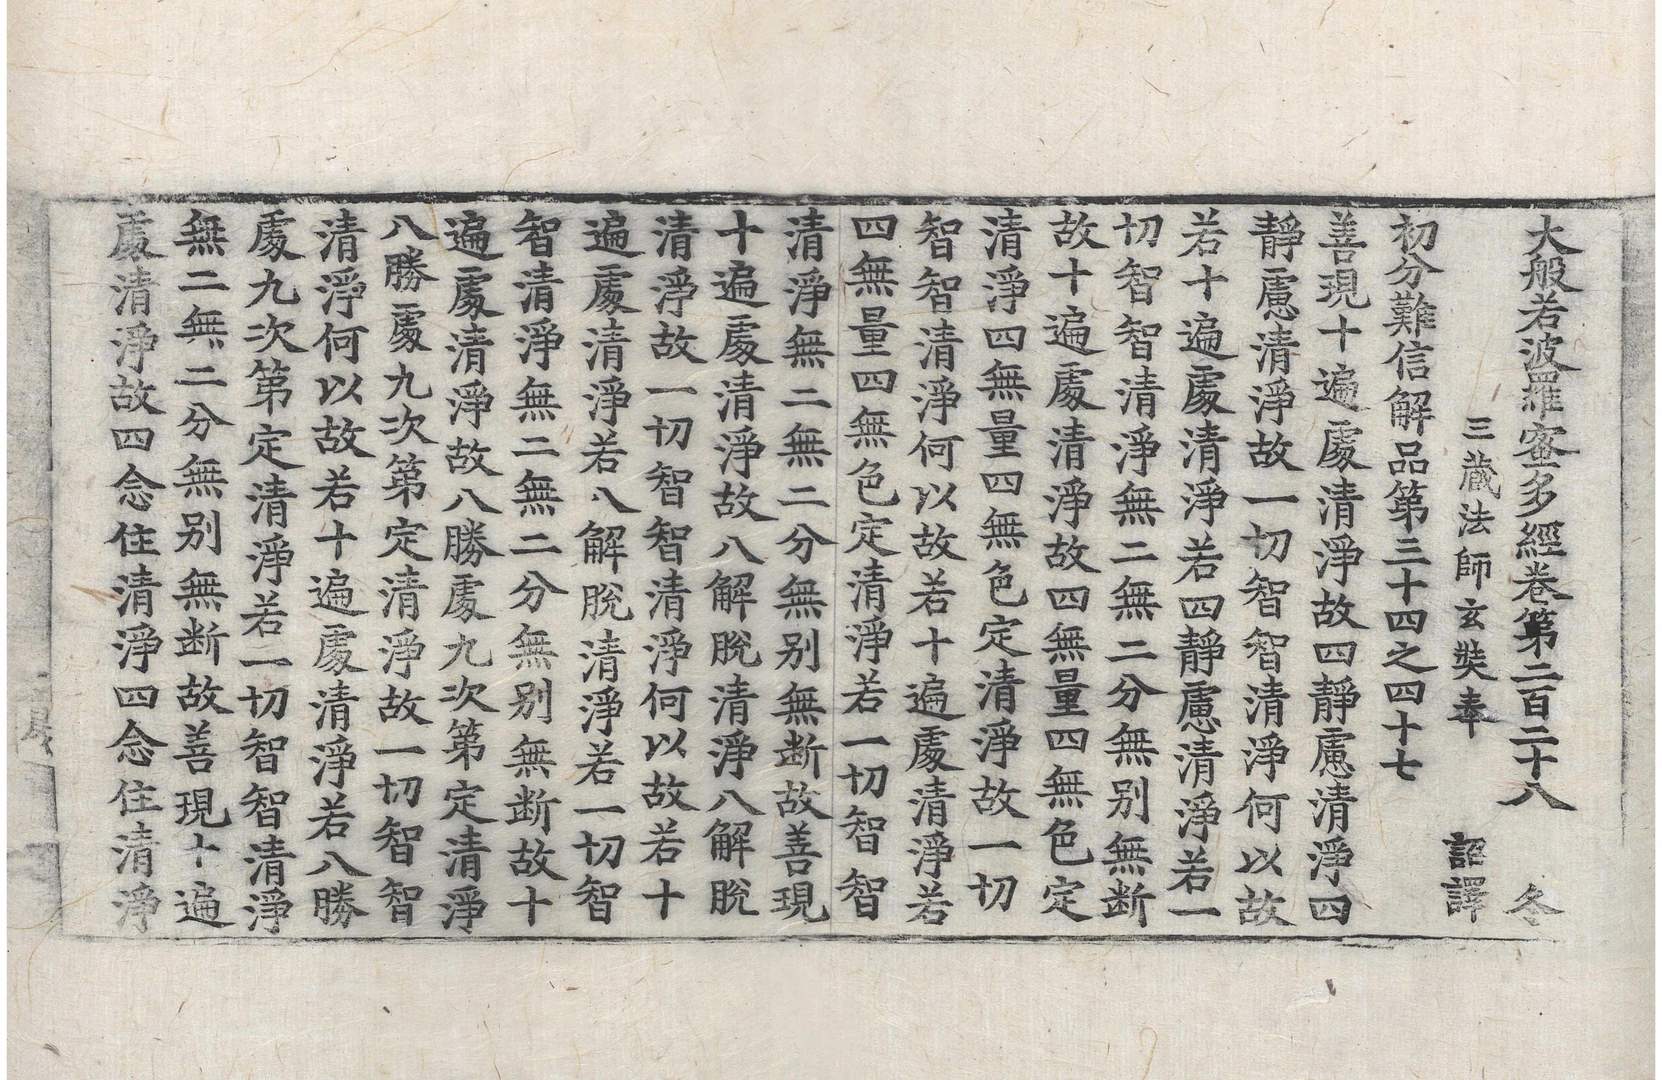 大般若波羅蜜多經卷第二百二十八　冬
三藏法師玄奘奉　詔譯
初分難信解品第三十四之四十七
善現十遍處清淨故四靜慮清淨四
靜慮清淨故一切智智清淨何以故
若十遍處清淨若四靜慮清淨若一
切智智清淨無二無二分無別無断
故十遍處清淨故四無量四無色定
清淨四無量四無色定清淨故一切
智智清淨何以故若十遍處清淨若
四無量四無色定清淨若一切智智
清淨無二無二分無別無断故善現
十遍處清淨故八解脫清淨八解脫
清淨故一切智智清淨何以故若十
遍處清淨若八解脫清淨若一切智
智清淨無二無二分無別無断故十
遍處清淨故八勝處九次第定清淨
八勝處九次第定清淨故一切智智
清淨何以故若十遍處清淨若八勝
處九次第定清淨若一切智智清淨
無二無二分無別無断故善現十遍
處清淨故四念住清淨四念住清淨